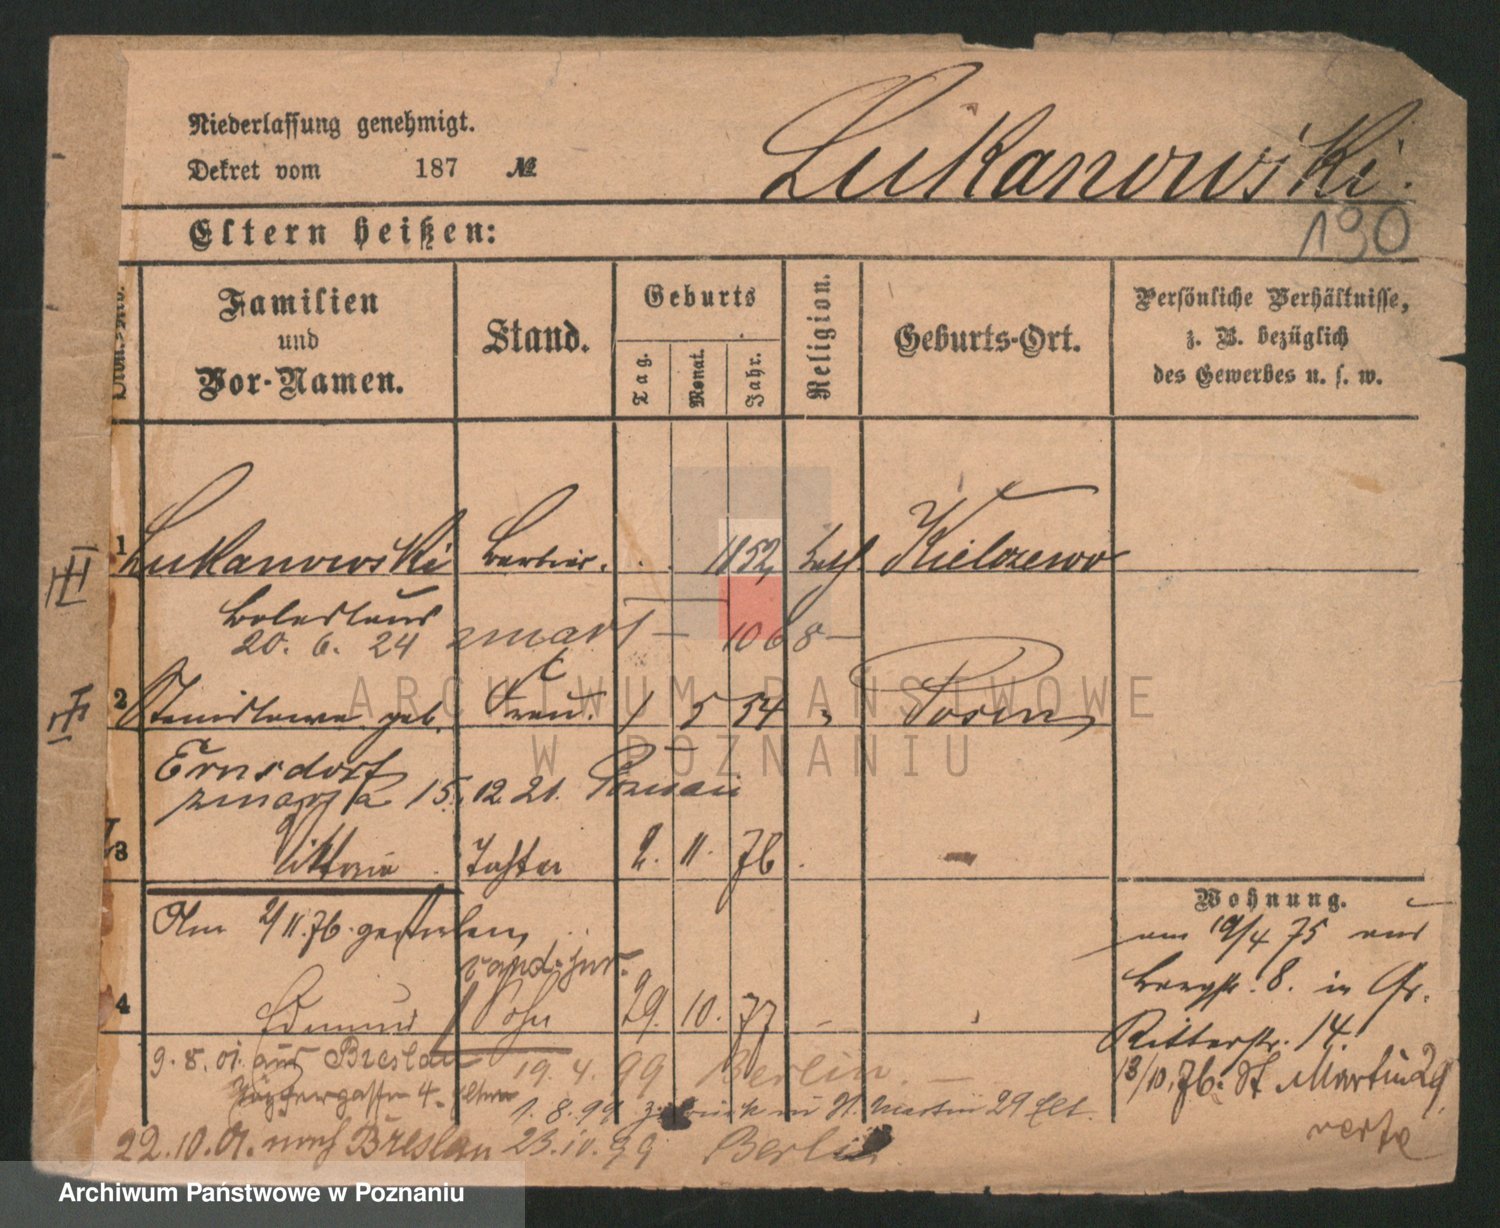 Niederlassung genehmigt.
Dekret vom 187 №
Lukanowski.
190
Eltern heißen:
Familien und Vor-Namen.
Stand.
Geburts
Tag. Monat. Jahr.
Religion.
Geburts-Ort.
Persönliche Verhältnisse,
z. B. bezüglich
des Gewerbes u. s. w.
1 Lukanowski Barbier. 1852 kath Kielczewo
Boleslaus
20. 6. 24 zmarł 1068
2 Stanislawa geb. Frau. 1 5 54 " Posen
Ernsdorf
zmarła 15. 12. 21. Poznań
3 Viktoria Tochter 2. 11. 76
Am 2/11. 76. geboren,
Wohnung.
am 19/4 75 aus
Bergstr. 8. in Gr.
Ritterstr. 14.
13/10. 76. St Martin 29
verte
cand. jur.
4 Edmund Sohn 29. 10. 77
9. 8. 01. aus Breslau 19. 4. 99 Berlin.
4. Eltern
1. 8. 99 zurück in St. Martin 29 Elt.
22. 10. 01. nach Breslau 23. 10. 99 Berlin
ARCHIWUM PAŃSTWOWE
W POZNANIU
Archiwum Państwowe w Poznaniu